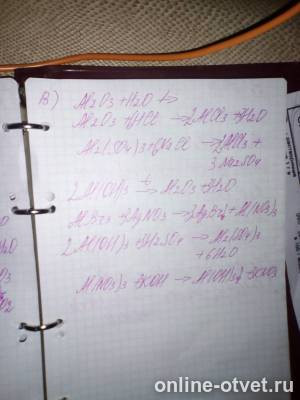 В) Al2O3 + H2O ↛
Al2O3 + 6HCl → 2AlCl3 + 3H2O
Al2(SO4)3 + 6NaCl → 2AlCl3 +
3Na2SO4
2Al(OH)3 →t Al2O3 + 3H2O
AlBr3 + 3AgNO3 → 3AgBr↓ + Al(NO3)3
2Al(OH)3 + 3H2SO4 → Al2(SO4)3
+ 6H2O
Al(NO3)3 + 3KOH → Al(OH)3↓ + 3KNO3
online-otvet.ru